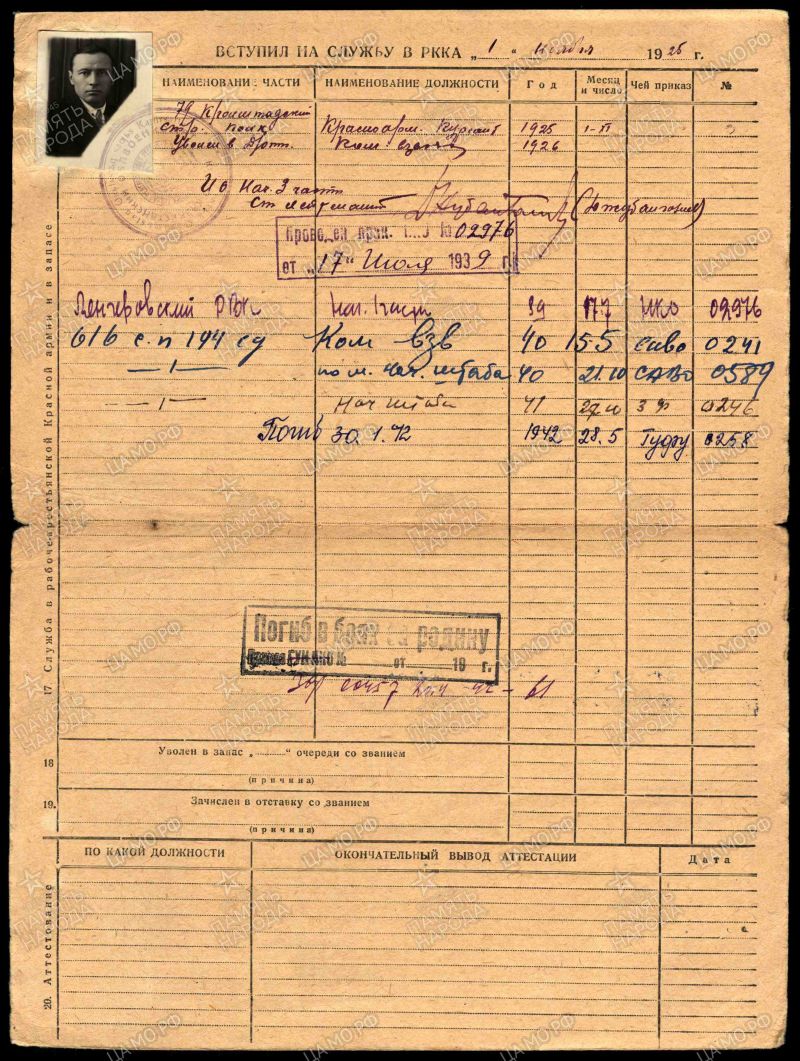 ВСТУПИЛ НА СЛУЖБУ В РККА „ 1 “ Ноября 1925 г.
НАИМЕНОВАНИЕ ЧАСТИ НАИМЕНОВАНИЕ ДОЛЖНОСТИ Год Месяц и число Чей приказ №
79 Кронштадский
стр. полк Красноарм. Курсант 1925 1-П
Уволен в Ком 1926
И О Нач. 3 части
Ст лейтенант
Проведен прик. НКО № 02976
от „17“ Июля 1939 г.
Венгеровский РВК Нач. 1 части 39 17.7 НКО 02976
616 с.п 194 сд Ком взв 40 15.5 САВО 0241
— 1 — пом. нач. штаба 40 21.10 САВО 0589
— 1 — Нач штаба 41 27.10 3 Ф 0246
Погиб 30.1.42 1942 28.5 Гуфу 0258
17 Служба в рабоче-крестьянской Красной армии и в запасе
Погиб в боях за родину
Приказ ГУК НКО № от 19 г.
18 Уволен в запас „ “ очереди со званием
(причина)
19. Зачислен в отставку со званием
(причина)
ПО КАКОЙ ДОЛЖНОСТИ ОКОНЧАТЕЛЬНЫЙ ВЫВОД АТТЕСТАЦИИ Дата
20. Аттестование
ПАМЯТЬ НАРОДА
ЦАМО.РФ